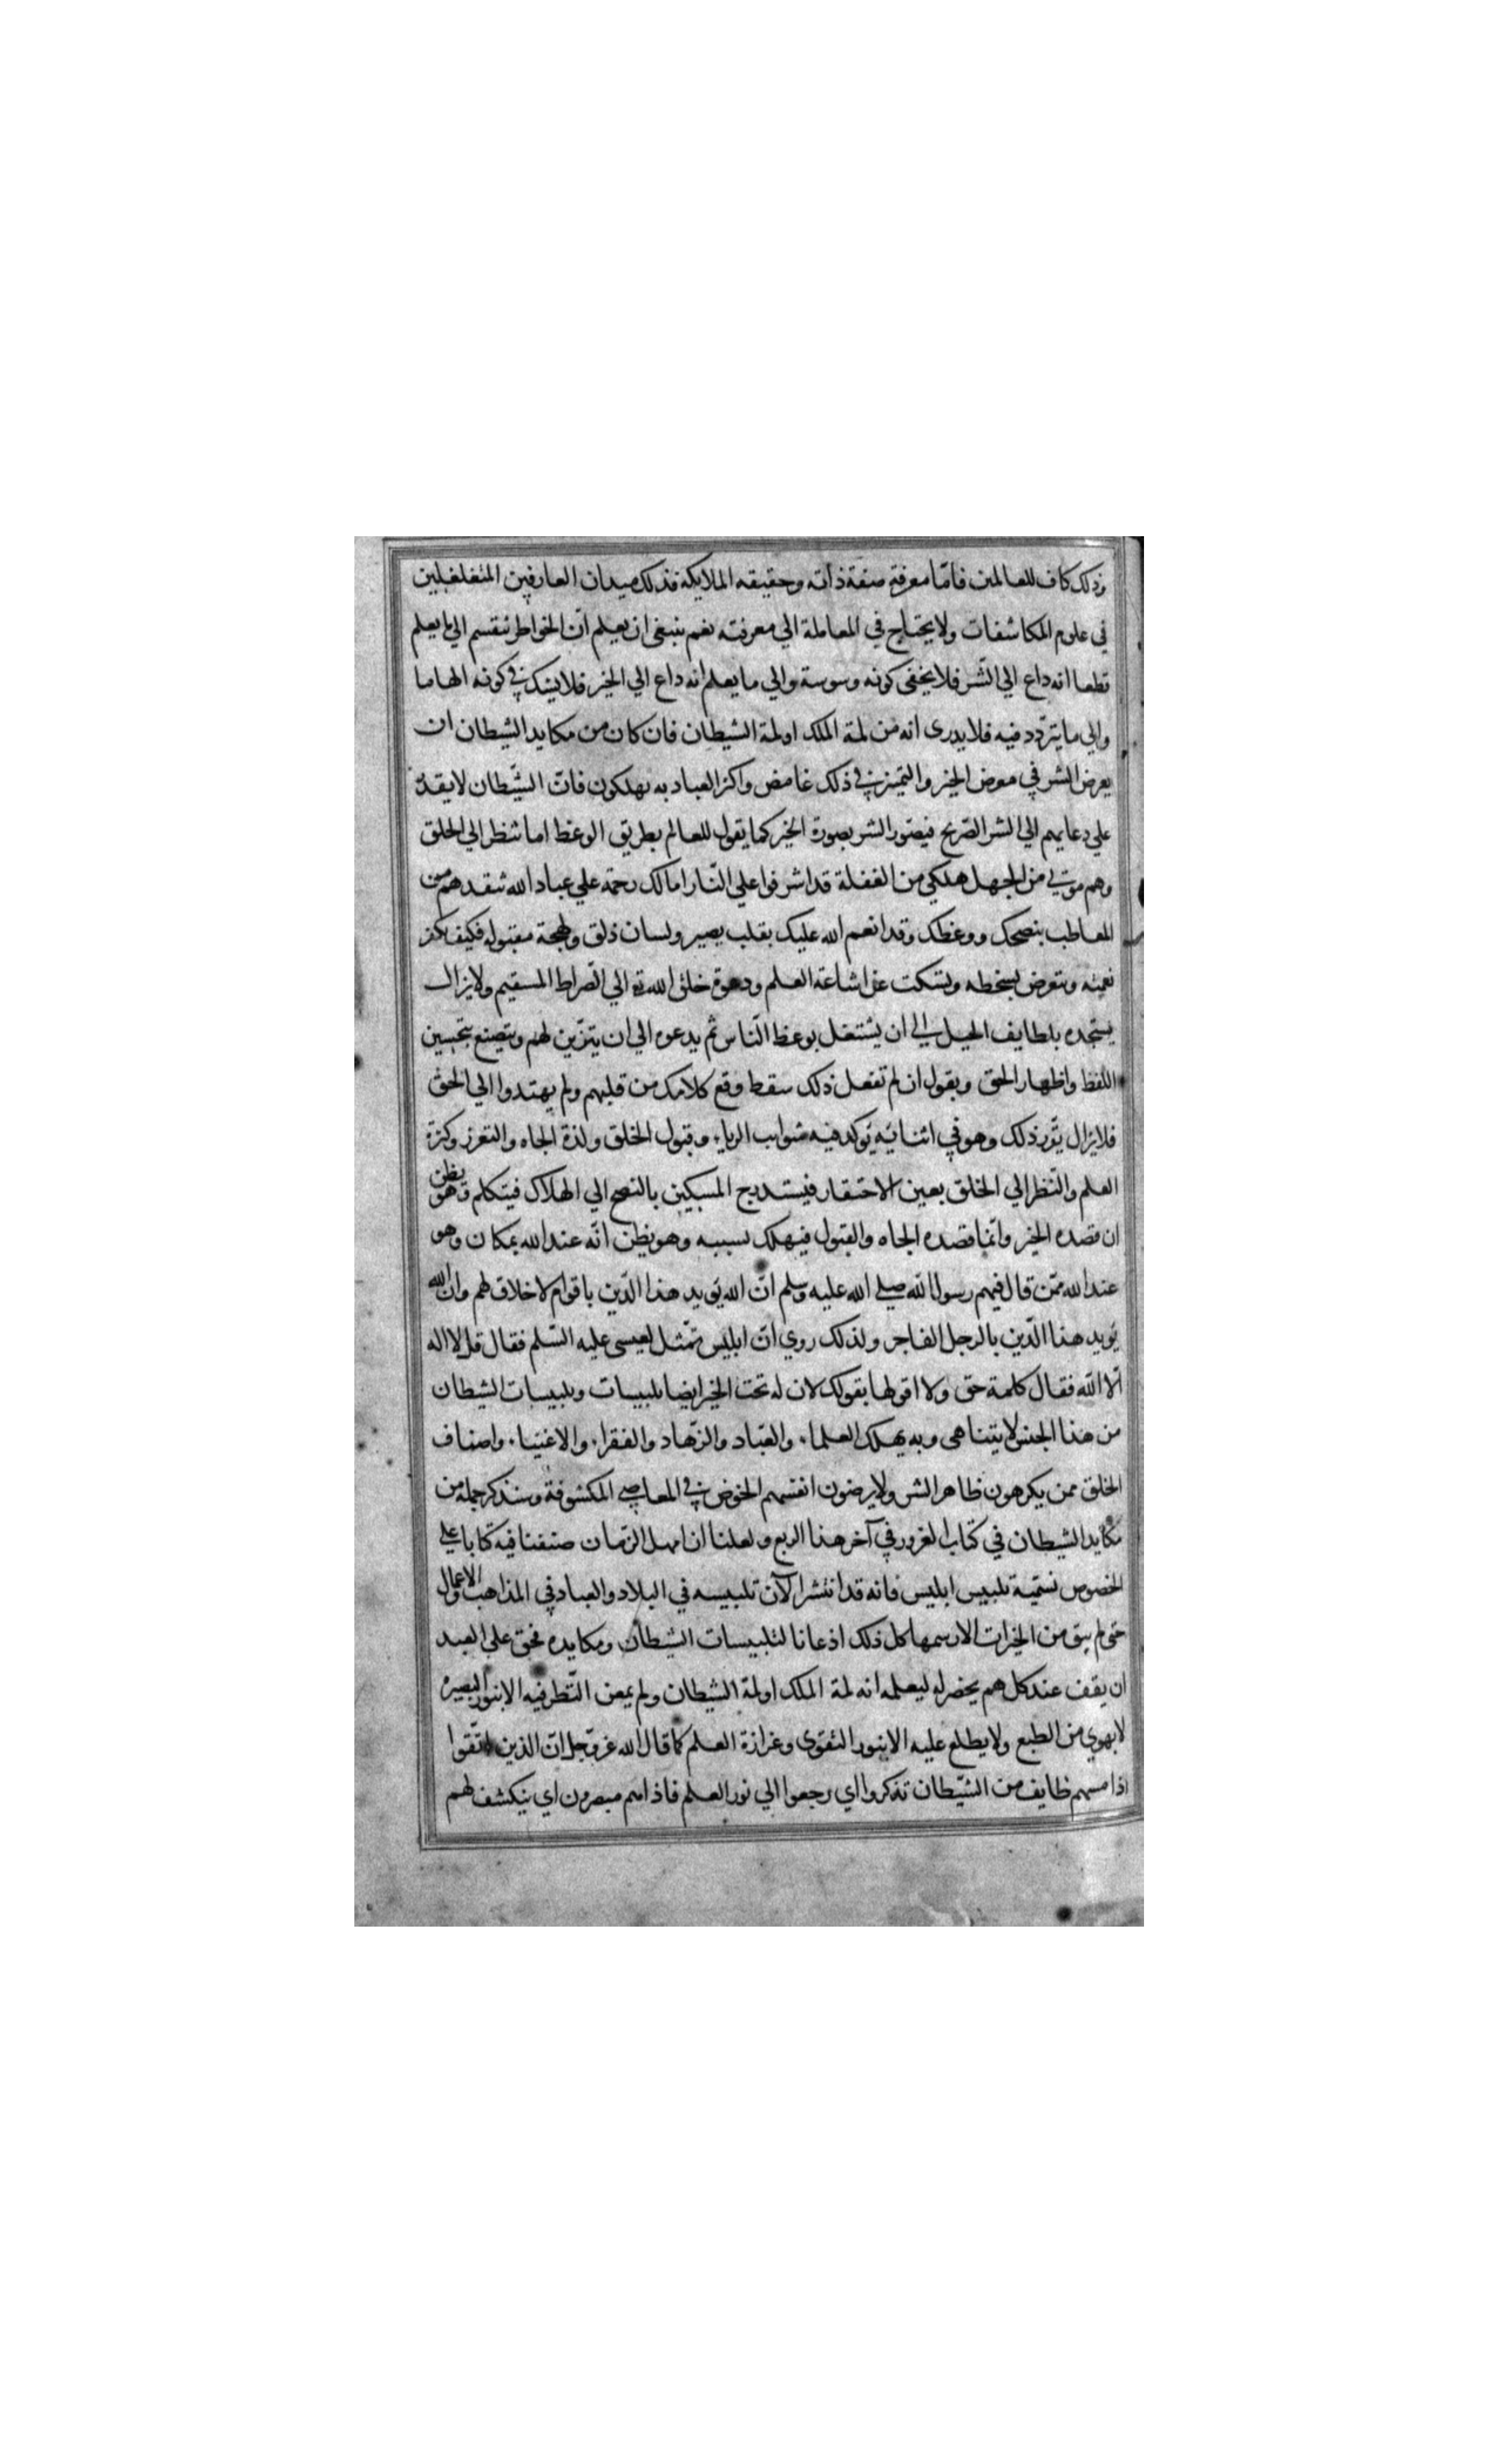 وذلك كاف للعالمين فامّا معرفة صفة ذاته وحقيقه الملايكه فذلك ميدان العارفين المتغلغلين
في علوم المكاشفات ولا يحتاج في المعاملة الي معرفته نعم ينبغي ان يعلم انّ الخواطر تنقسم الي ما يعلم
قطعا انه داع الي الشّر فلا يخفى كونه وسوسة والي ما يعلم انه داع الي الخير فلا يشك في كونه الهاما
والي ما يتردّد فيه فلا يدرى انه من لمة الملك او لمة الشيطان فان كان من مكايد الشيطان ان
يعرض الشر في معرض الخير والتميز في ذلك غامض واكثر العباد به يهلكون فانّ الشّيطان لا يقدر
علي دعايهم الي الشر الصّريح فيصوّر الشر بصورة الخير كما يقول للعالم بطريق الوعظ اما تنظر الي الخلق
وهم موتي من الجهل هلكي من الغفلة قد اشرفوا علي النّار اما لك رحمة علي عباد الله تنقدهم من
المعاطب بنصحك ووعظك وقد انعم الله عليك بقلب بصير ولسان ذلق ولهجة مقبوله فكيف تكفر
نعمته وتتعرض لسخطه وتسكت عن اشاعة العلم ودعوة خلق الله تع الي الصّراط المستقيم ولا يزال
يستجده بلطايف الحيل الي ان يشتغل بوعظ النّاس ثم يدعوه الي ان يتزّين لهم ويتصنع بتحسين
اللفظ واظهار الحق ويقول ان لم تفعل ذلك سقط وقع كلامك من قلبهم ولم يهتدوا الي الحق
فلا يزال يقرر ذلك وهو في اثنائيه يوكد فيه شوايب الرياء وقبول الخلق ولذة الجاه والتعزز وكثرة
العلم والنّظر الي الخلق بعين الاحتقار فيستدرج المسكين بالنصح الي الهلاك فيتكلم وهو يظن
ان قصده الخير وانّما قصده الجاه والقبول فيهلك بسببه وهو يظن انّه عند الله بمكان وهو
عند الله ممّن قال فيهم رسول الله صلي الله عليه وسلم انّ الله يويد هذا الدّين باقوام لا خلاق لهم وان الله
يويد هذا الدّين بالرجل الفاجر ولذلك روي انّ ابليس تمّثل لعيسى عليه السّلم فقال قل لا اله
الّا الله فقال كلمة حق ولا اقولها بقولك لان له تحت الخير ايضا تلبيسات وتلبيسات الشيطان
من هذا الجنس لا يتناهى وبه يهلك العلماء والعبّاد والزّهاد والفقراء والاغنياء واصناف
الخلق ممن يكرهون ظاهر الشر ولا يرضون انفسهم الخوض في المعاصي المكشوفة وسنذكر جملة من
مكايد الشيطان في كتاب الغرور في آخر هذا الربع ولعلنا ان امهل الزّمان صنفنا فيه كتابا علي
الخصوص نسمّية تلبيس ابليس فانه قد انتشر الآن تلبيسه في البلاد والعباد في المذاهب والاعمال
حتى لم يبق من الخيرات الا رسمها كل ذلك اذعانا لتلبيسات الشيطان ومكايده فحق على العبد
ان يقف عند كل هم يخضر له ليعلمه انه لمة الملك او لمة الشيطان ولم يمعن النّظر فيه الا بنور البصيره
لا بهوي من الطبع ولا يطلع عليه الا بنور التقوى وغزازة العلم كما قال الله عزّ وجل انّ الذين اتّقوا
اذا مسهم طايف من الشّيطان تذكروا اي رجعوا الي نور العلم فاذا هم مبصرون اي ينكشف لهم